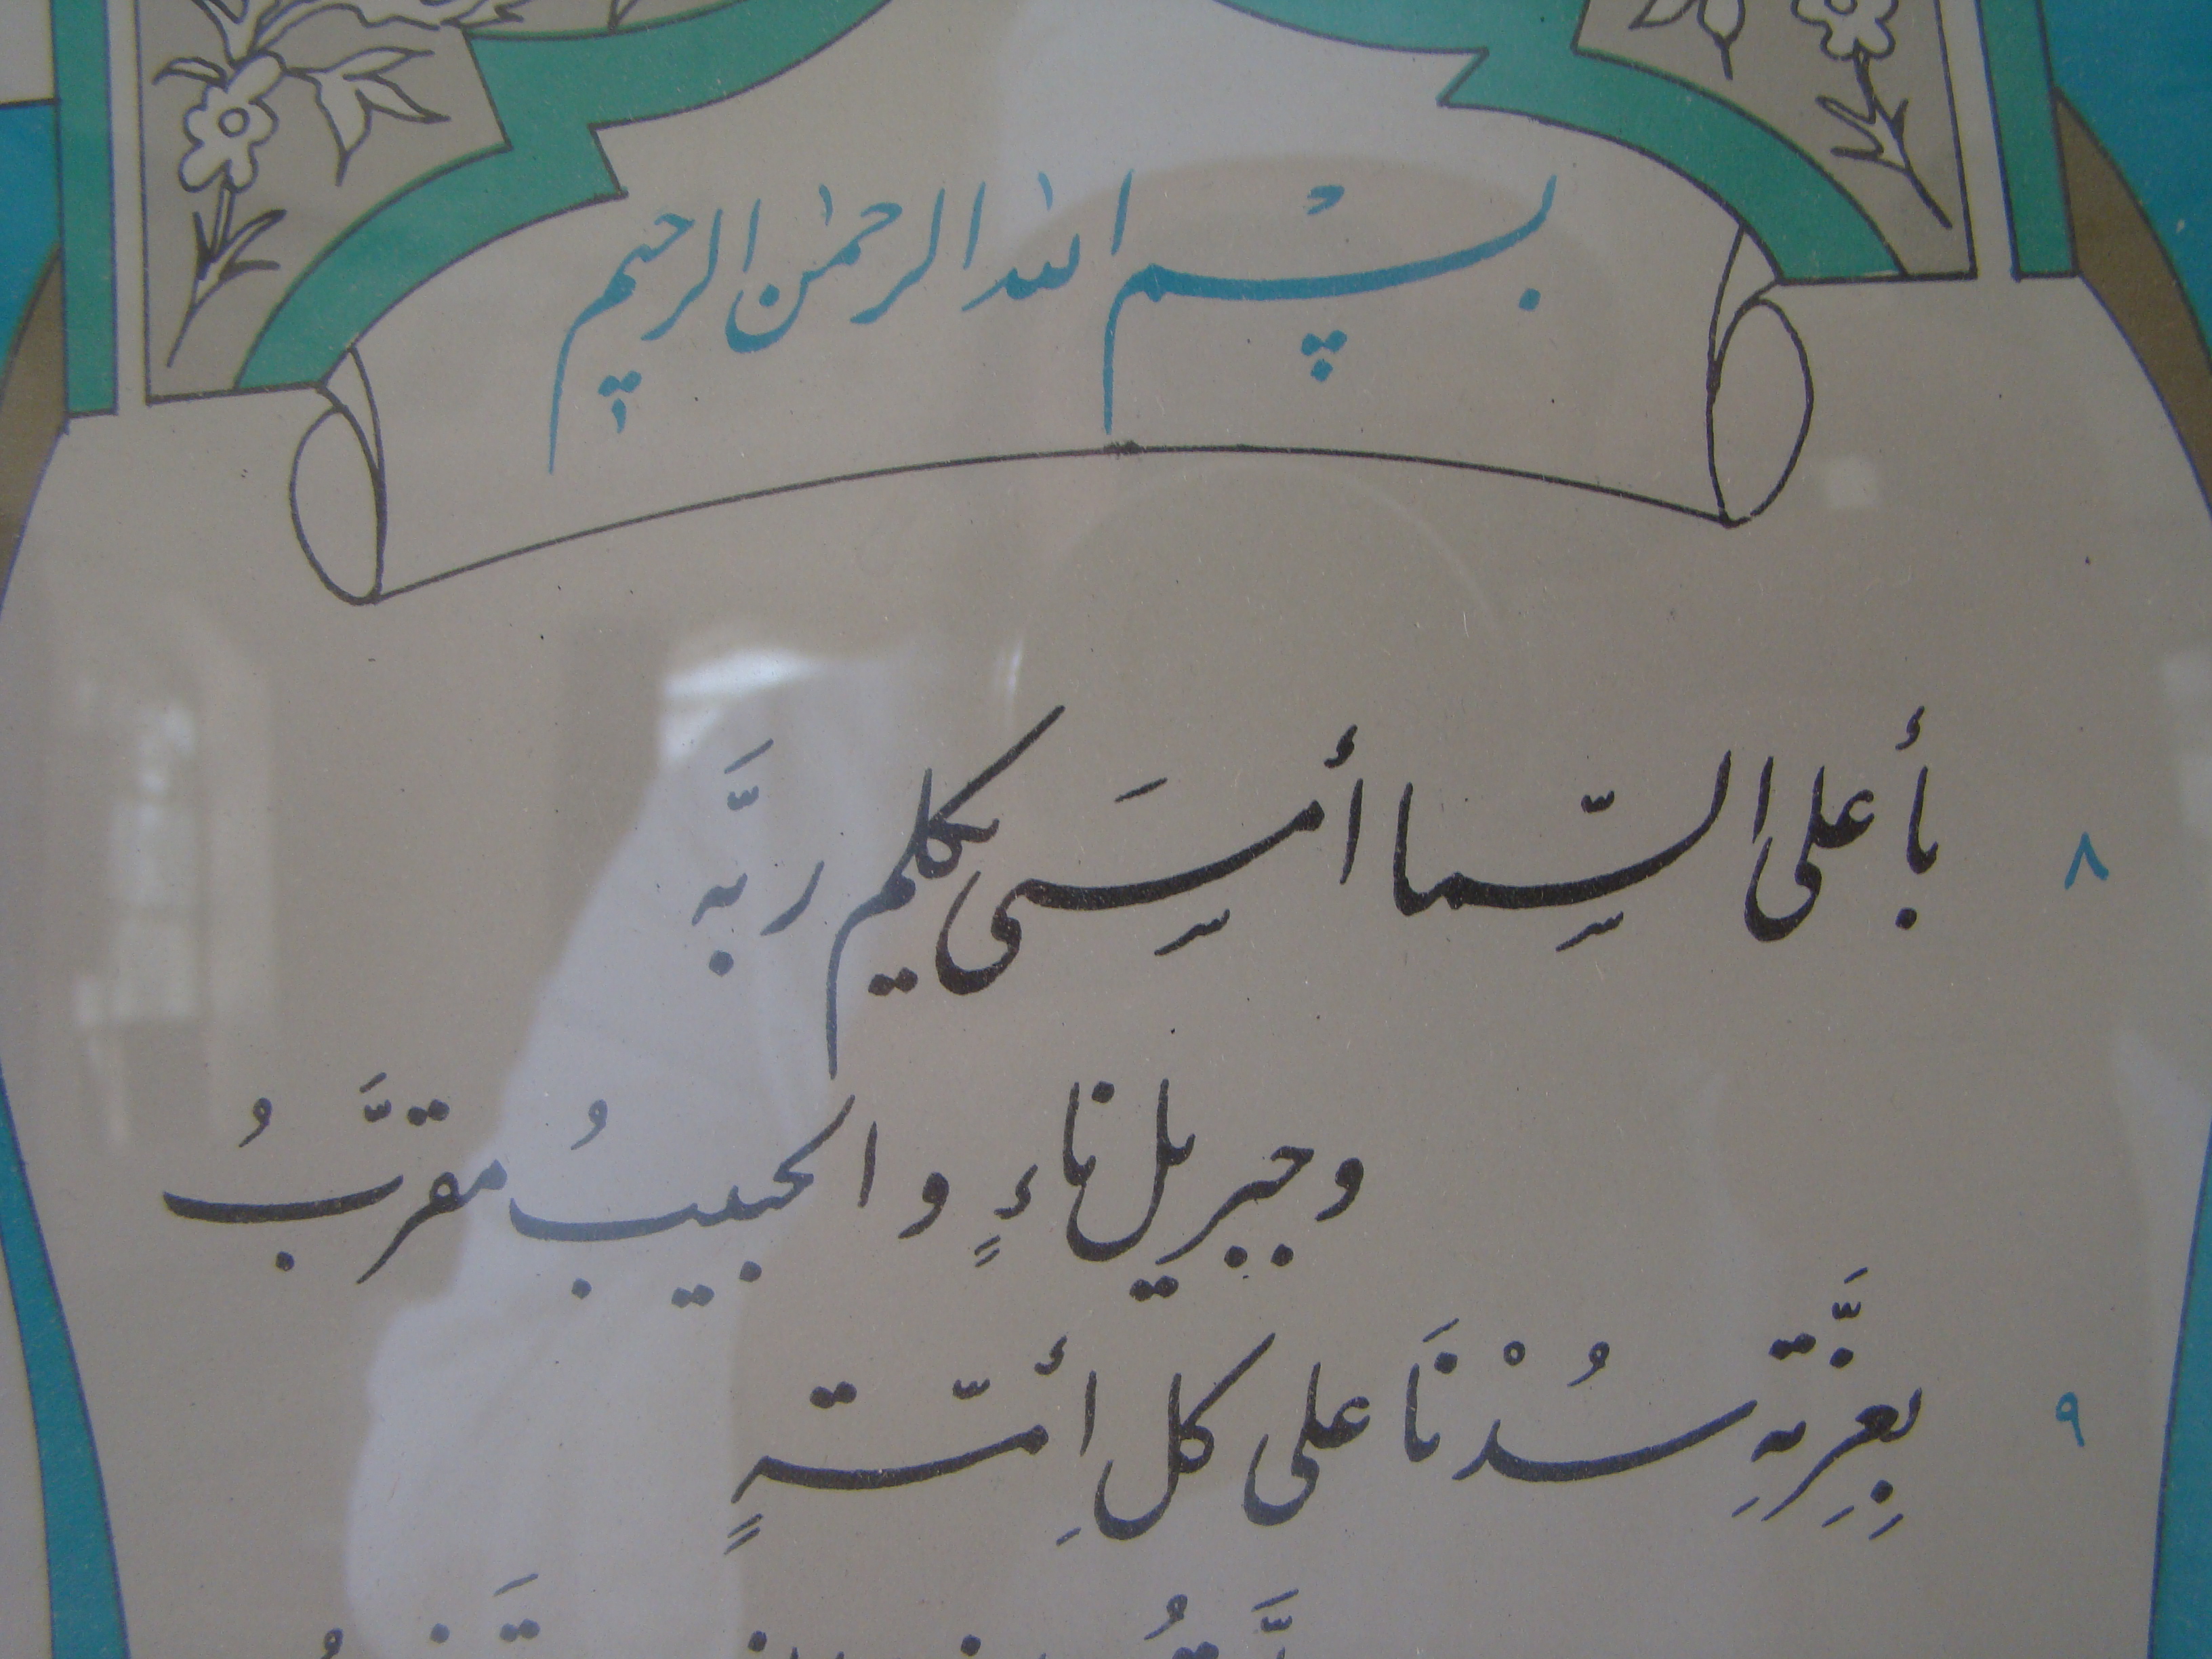 بسم الله الرحمٰن الرحيم
٨ بأعلى السِّما أمسَِى يكلم ربَّه
وجبريل ناءٍ والحبيبُ مقرَّبُ
٩ بِعِزَّتِهِ سُدْنَا على كلِ أمّةٍ